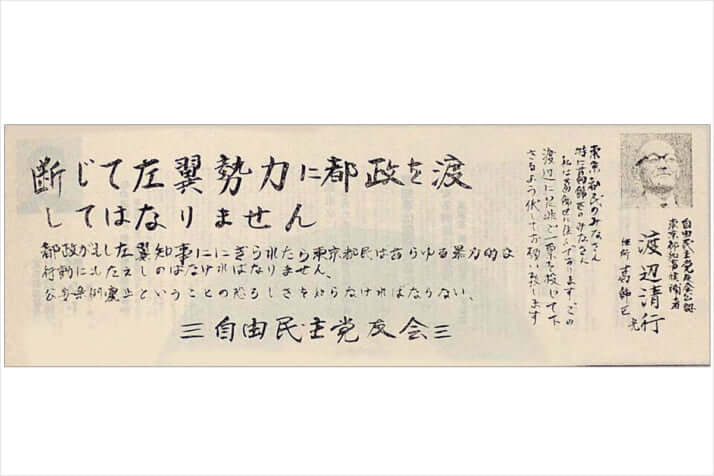 自由民主党友会公認
東京都知事候補者
渡辺清行
住所 葛飾区
東京都民のみなさん
特に葛飾区のみなさん
私は葛飾に住んで居ります、この
渡辺に是非一票を投じて下
さるよう伏してお願い致します
断じて左翼勢力に都政を渡
してはなりません
都政がもし左翼知事ににぎられたら東京都民はあらゆる暴力的な
行動にもたえしのばなければなりません、
ということの恐ろしさを知らなければならない、
三自由民主党友会三